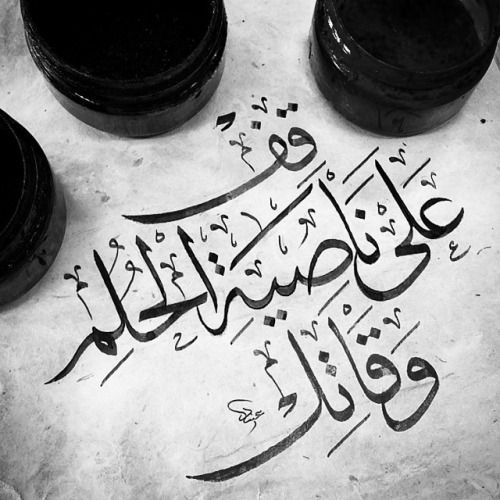 قف
عَلَى نَاصِيَةِ الْحُلمِ
وَقَاتِل